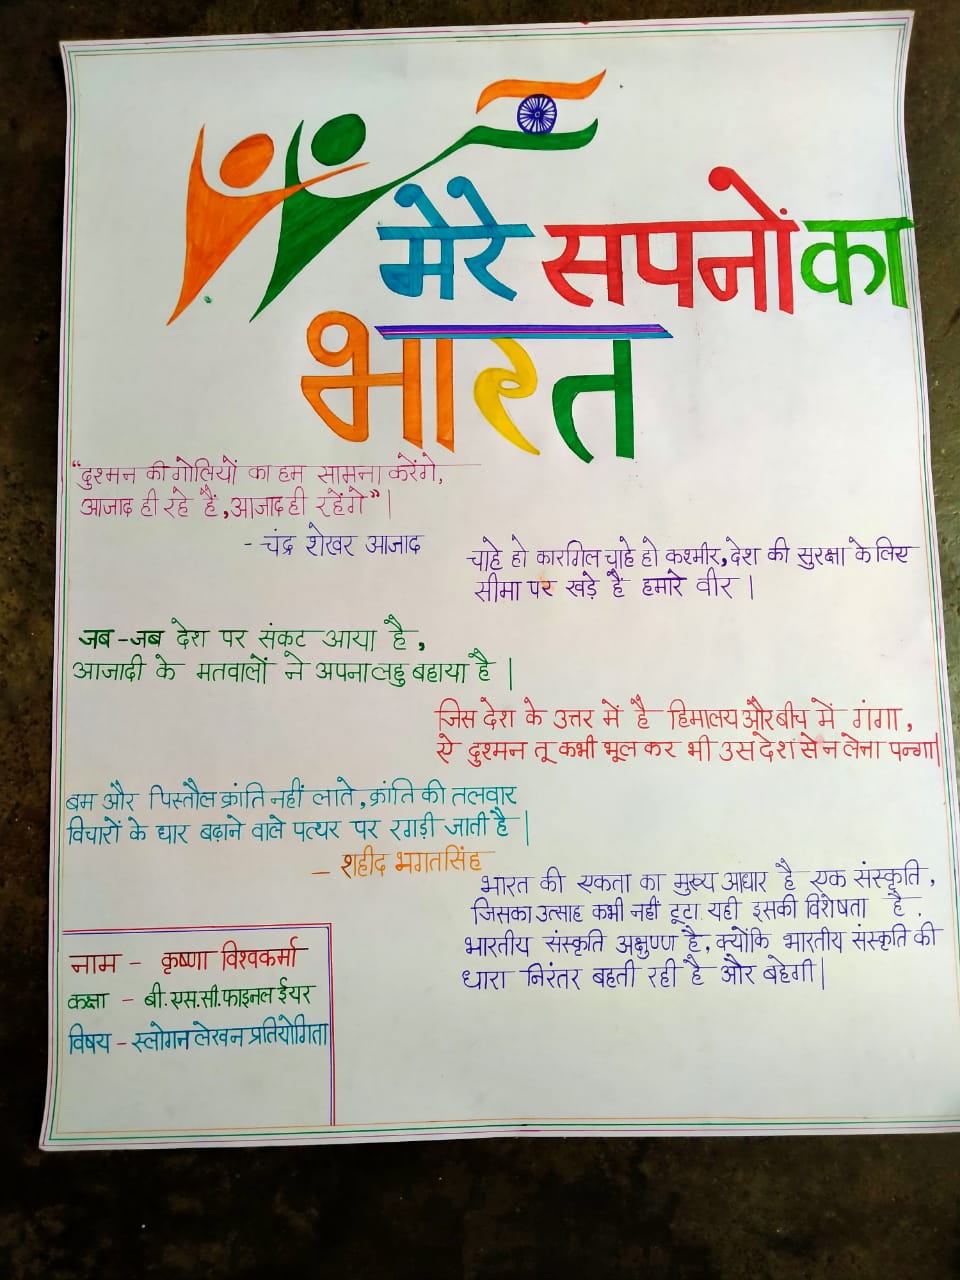 मेरे सपनों का
भारत
“दुश्मन की गोलियों का हम सामना करेंगे,
आजाद ही रहे हैं, आजाद ही रहेंगे” |
- चंद्र शेखर आजाद
चाहे हो कारगिल चाहे हो कश्मीर, देश की सुरक्षा के लिए
सीमा पर खड़े हैं हमारे वीर |
जब - जब देश पर संकट आया है,
आजादी के मतवालों ने अपना लहु बहाया है |
जिस देश के उत्तर में है हिमालय और बीच में गंगा,
ऐ दुश्मन तू कभी भूल कर भी उस देश से न लेना पन्गा|
बम और पिस्तौल क्रांति नहीं लाते, क्रांति की तलवार
विचारों के धार बढ़ाने वाले पत्थर पर रगड़ी जाती है |
– शहीद भगतसिंह
भारत की एकता का मुख्य आधार है एक संस्कृति,
जिसका उत्साह कभी नहीं टूटा. यही इसकी विशेषता है.
भारतीय संस्कृति अक्षुण्ण है, क्योंकि भारतीय संस्कृति की
धारा निरंतर बहती रही है और बहेगी|
नाम – कृष्णा विश्वकर्मा
कक्षा - बी.एस.सी.फाइनल ईयर
विषय – स्लोगन लेखन प्रतियोगिता